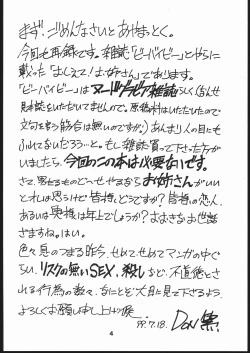 まず、ごめんなさいとあやまっとく。
今回も再録です。雑誌「ビーバイビー」とやらに
載った「ましょうてんお姉さん」であります。
「ビーバイビー」はヌードグラビア雑誌らしく(なんせ
見本誌をいただいてませんので。原稿料はいただいたので
文句を言う筋合は無いのですが。)あんまり人の目にも
ふれてないだろうーと。もし雑誌買って下さった方が
いましたら、今回のこの本は必要ないぜす。
さて、寄せるものどーせやるならお姉さんがいい
とオレは思うけど皆様、どうですか?皆様の恋人、
あるいは奥様は年上でしょうか?よけいなお世話
さますね。はい。
色々見のつまる昨今、せめて、せめてマンガの中ぐ
らい、リスクの無いSEX、殺しなど、不道徳とさ
れる行為の数々、なにとぞ大目に見て下さるよう、
よろしくお願い申し上げ候
'99.7.18.
4